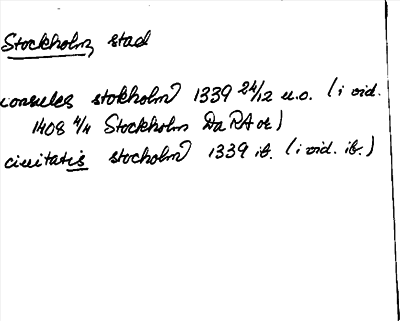 Stockholm, stad
consules stokholm 1339 24/12 u.o. (i vid.
1408 4/4 Stockholm Da RA or)
ciuitatis stocholm 1339 ib. (i vid. ib.)